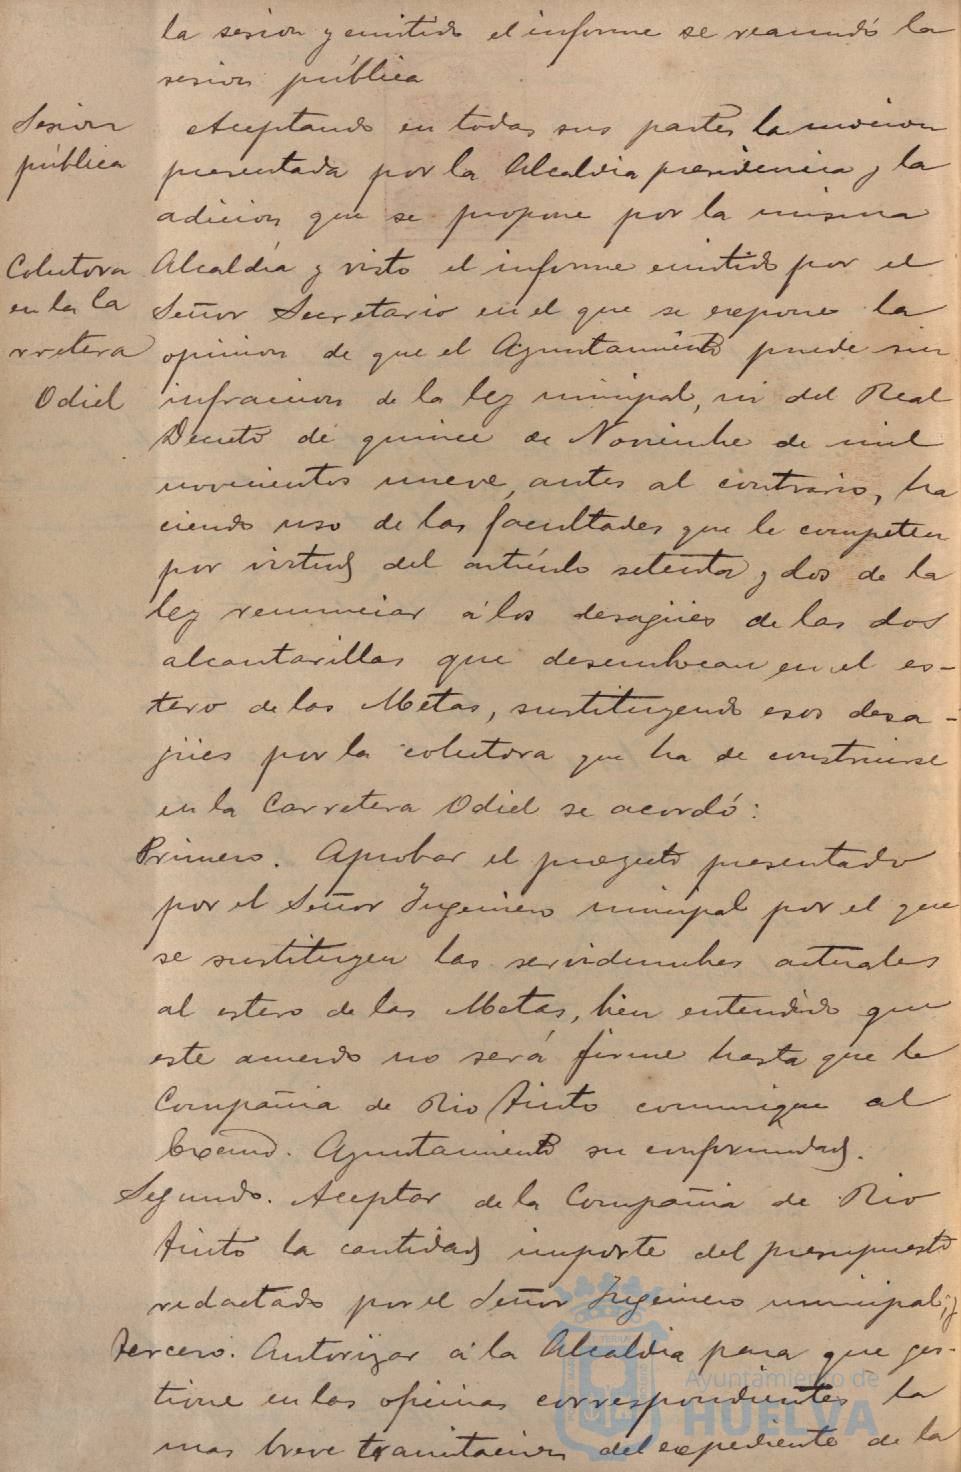 la sesion y emitido el informe se reanudó la
sesion pública
Sesion
pública
Aceptando en todas sus partes la mocion
presentada por la Alcaldia presidencia y la
adicion que se propone por la misma
Colectora
en la Ca
rretera
Odiel
Alcaldía y visto el informe emitido por el
Señor Secretario en el que se expone la
opinion de que el Ayuntamiento puede sin
infraccion de la ley municipal, ni del Real
Decreto de quince de Noviembre de mil
novecientos nueve, antes al contrario, ha
ciendo uso de las facultades que le competen
por virtud del artículo setenta y dos de la
ley renunciar á los desagües de las dos
alcantarillas que desembocan en el es-
tero de las Metas, sustituyendo esos desa-
gües por la colectora que ha de construirse
en la Carretera Odiel se acordó:
Primero. Aprobar el proyecto presentado
por el Señor Ingeniero municipal por el que
se sustituyen las servidumbres actuales
al estero de las Metas, bien entendido que
este acuerdo no será firme hasta que la
Compañia de Rio Tinto comunique al
Excmo. Ayuntamiento su conformidad.
Segundo. Aceptar de la Compañia de Rio
Tinto la cantidad importe del presupuesto
redactado por el Señor Ingeniero municipal; y
Tercero. Autorizar á la Alcaldia para que ges-
tione en las oficinas correspondientes la
mas breve tramitacion del expediente de la
Ayuntamiento de
HUELVA